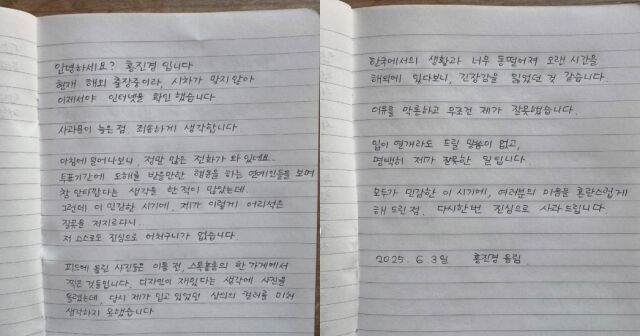 안녕하세요? 홍진경 입니다
현재 해외 출장중이라, 시차가 맞지 않아
이제서야 인터넷을 확인 했습니다
사과문이 늦은 점. 죄송하게 생각합니다
아침에 일어나보니, 정말 많은 전화가 와 있더군요..
투표기간에 오해를 받을만한 행동을 하는 연예인들을 보며
참 안타깝다는 생각을 한 적이 많았는데.
그런데 이 민감한 시기에, 제가 이렇게 어리석은
잘못을 저지르다니.
저 스스로도 진심으로 어처구니가 없습니다.
피드에 올린 사진들은 이틀 전, 스톡홀름의 한 가게에서
찍은 것들입니다. 디자인이 재밌다는 생각에 사진을
올렸는데, 당시 제가 입고 있었던 상의의 컬러를 미처
생각하지 못했습니다
한국에서의 생활과 너무 동떨어져 오랜 시간을
해외에 있다보니, 긴장감을 잃었던 것 같습니다.
이유를 막론하고 무조건 제가 잘못했습니다.
입이 열개라도 드릴 말씀이 없고,
명백히 제가 잘못한 일입니다.
모두가 민감한 이 시기에, 여러분의 마음을 혼란스럽게
해 드린 점. 다시한번 진심으로 사과드립니다.
2025. 6. 3일 홍진경 올림